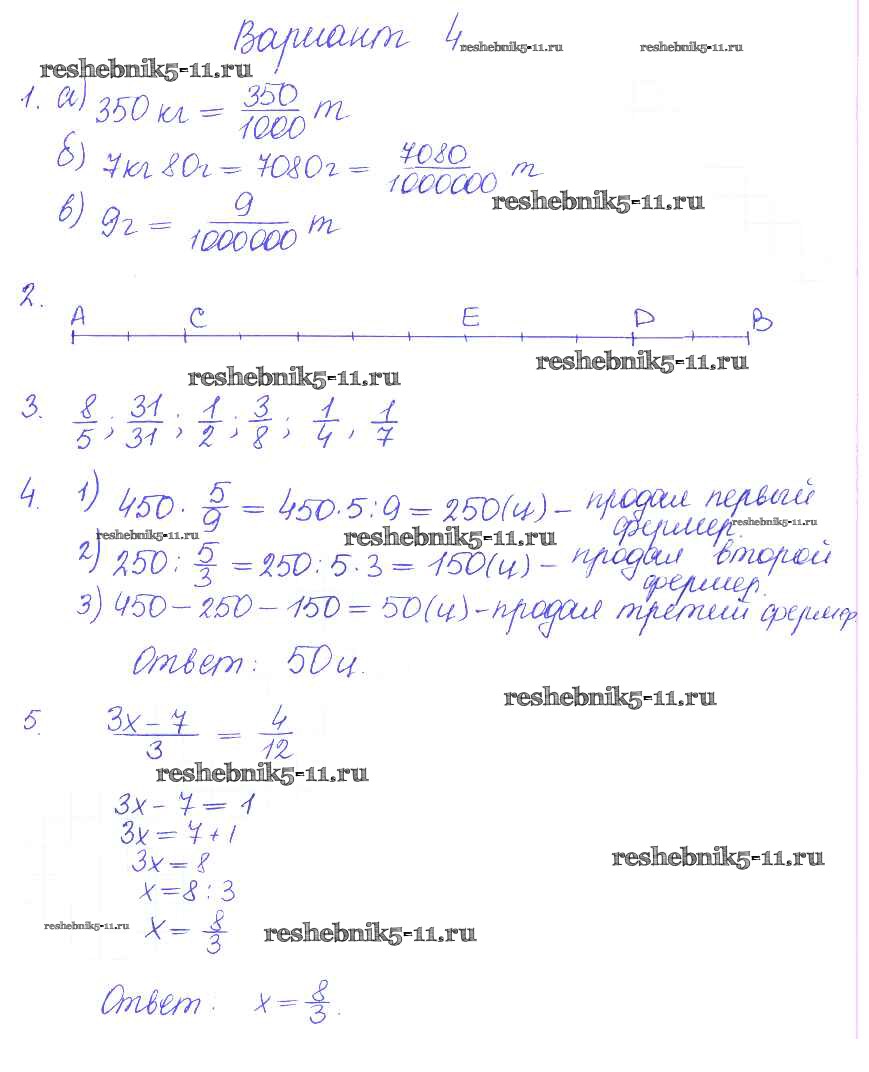 Вариант 4 reshebnik5-11.ru reshebnik5-11.ru
reshebnik5-11.ru
1. а) 350 кг = 350/1000 т
б) 7кг 80г = 7080г = 7080/1000000 т
reshebnik5-11.ru
в) 9г = 9/1000000 т
2.
A C E D B
reshebnik5-11.ru
reshebnik5-11.ru
3. 8/5; 31/31; 1/2; 3/8; 1/4, 1/7
4. 1) 450 · 5/9 = 450·5:9 = 250(ц) – продал первый
фермер. reshebnik5-11.ru
reshebnik5-11.ru reshebnik5-11.ru
2) 250 : 5/3 = 250:5·3 = 150(ц) – продал второй
фермер.
3) 450 – 250 – 150 = 50(ц) – продал третий фермер
Ответ: 50ц.
reshebnik5-11.ru
5. (3x – 7)/3 = 4/12
reshebnik5-11.ru
3x – 7 = 1
3x = 7 + 1
3x = 8
reshebnik5-11.ru
x = 8 : 3
reshebnik5-11.ru x = 8/3 reshebnik5-11.ru
Ответ: x = 8/3.